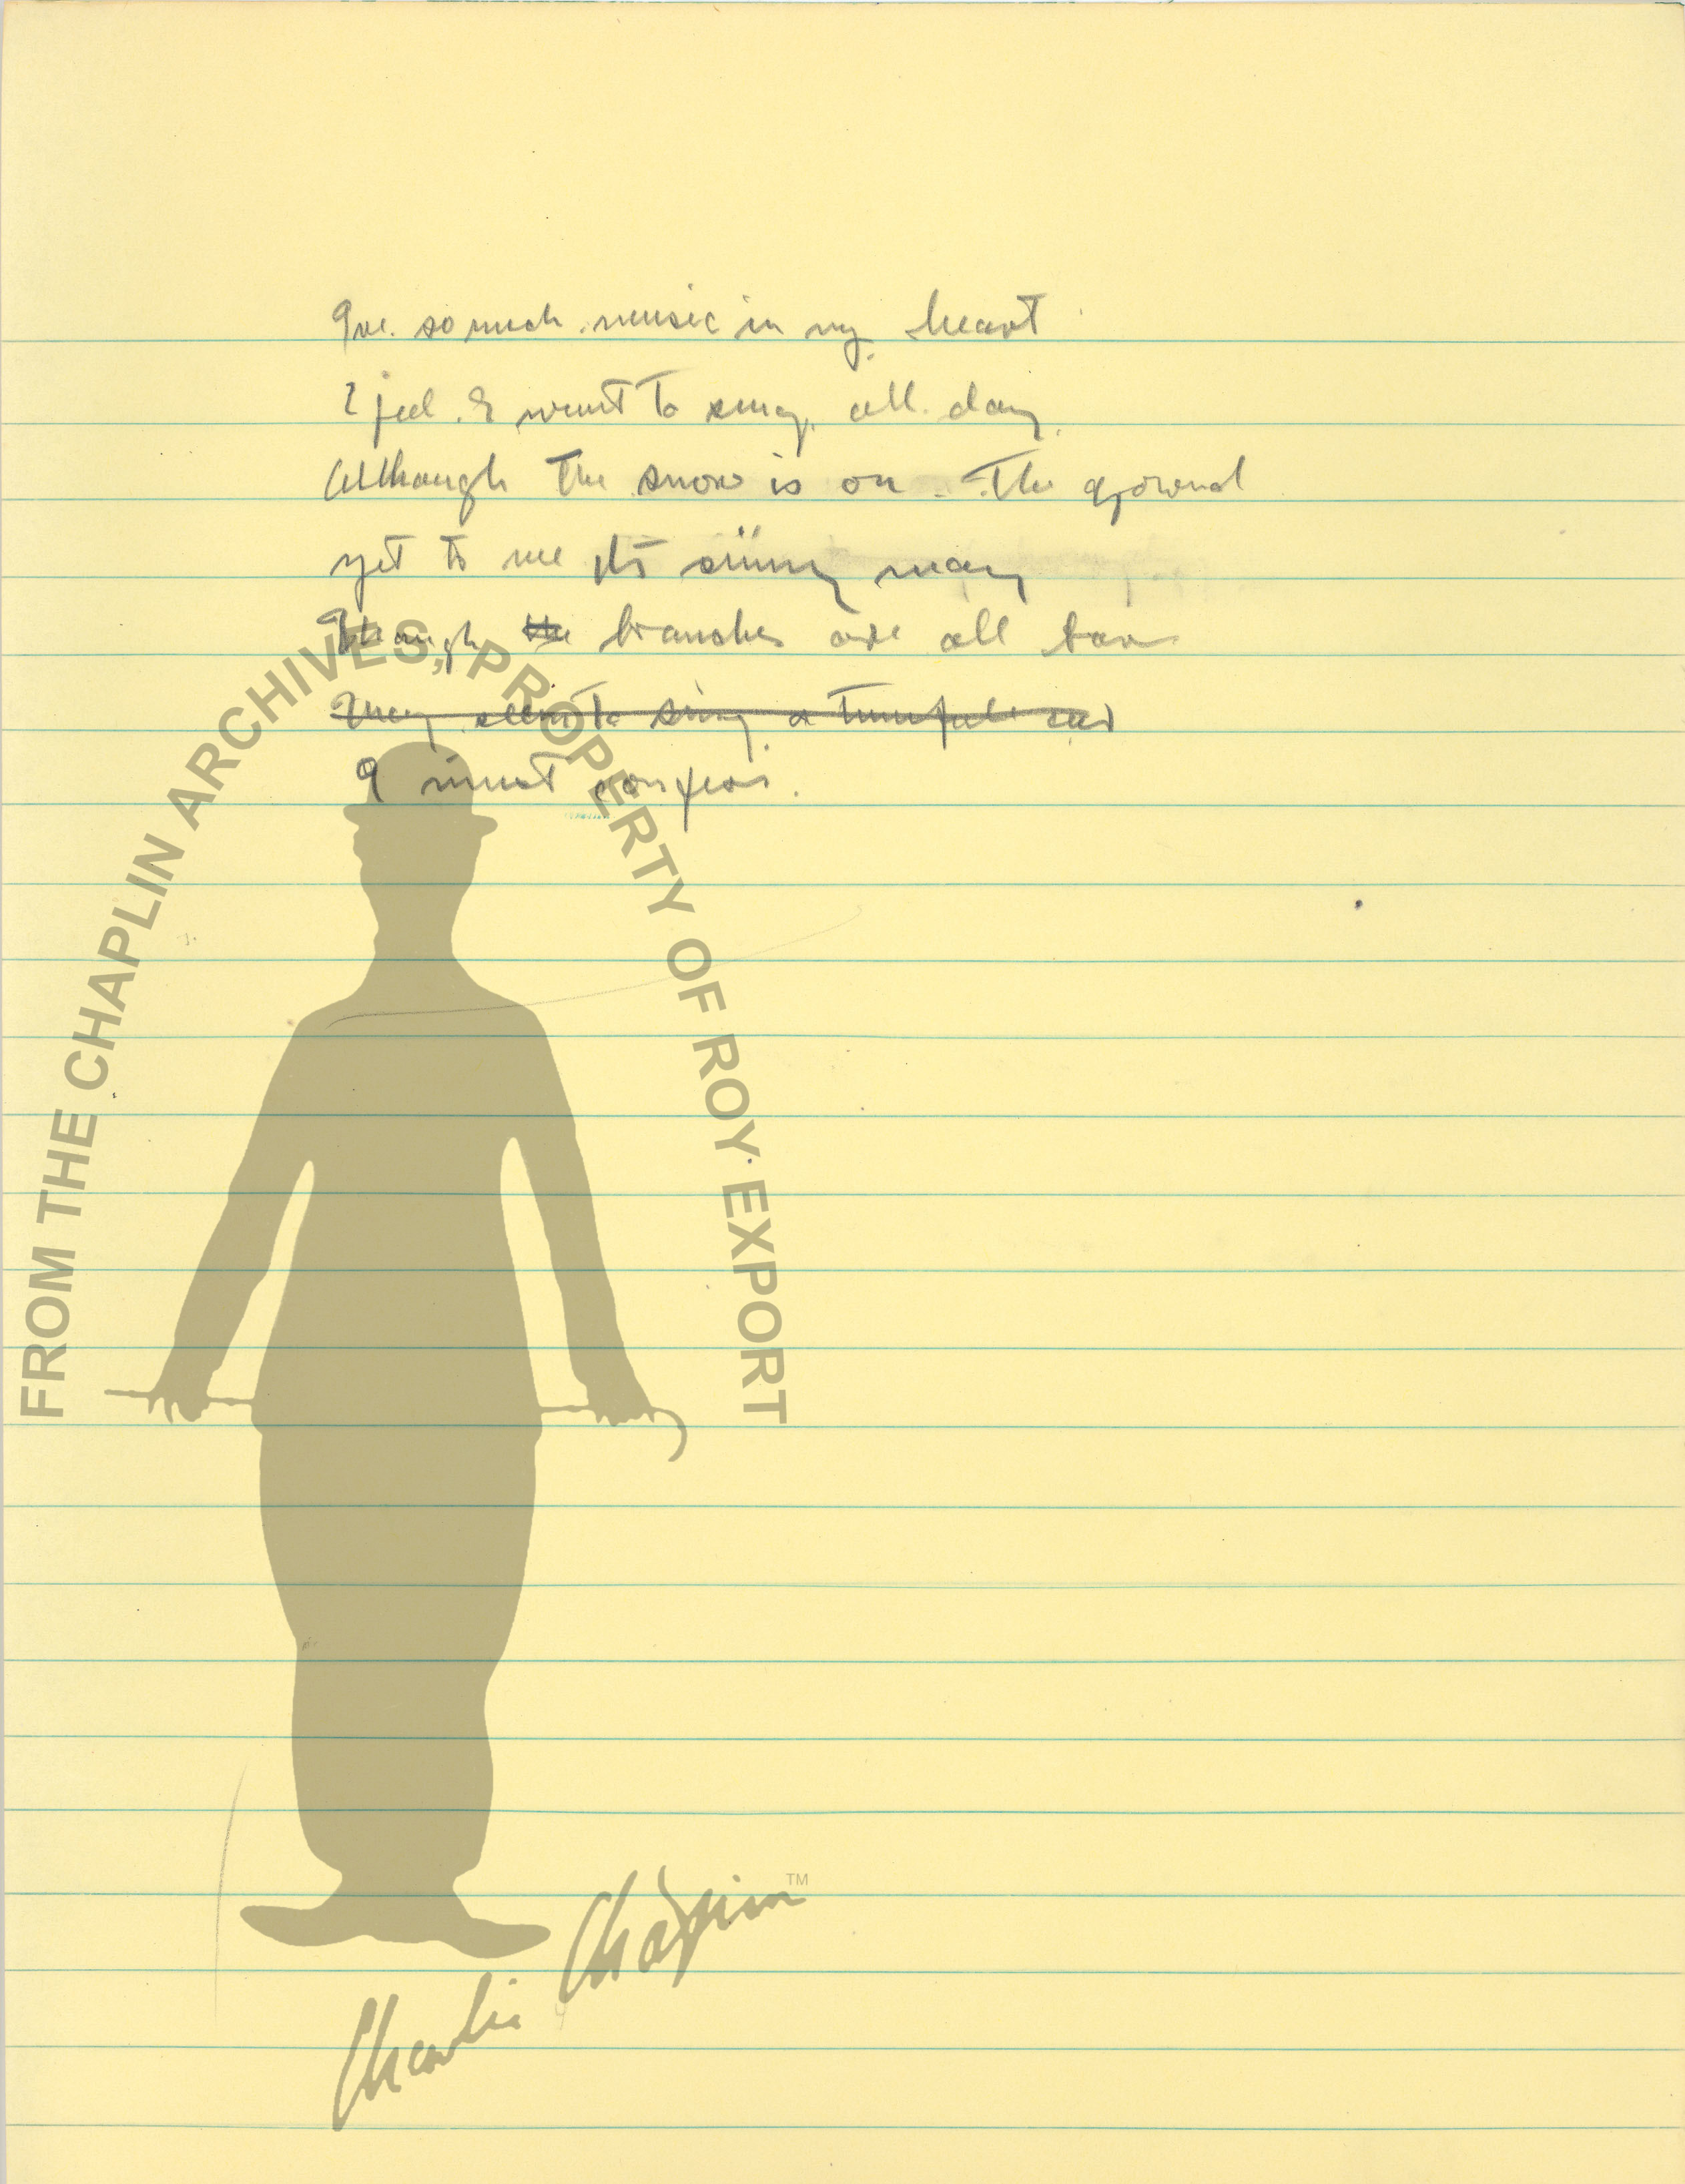 I've so much music in my heart
I feel I want to sing all day.
Although the snow is on the ground
yet to me its sunny may
Though the branches are all bare
They seem to sing a tuneful
I must confess.
FROM THE CHAPLIN ARCHIVES, PROPERTY OF ROY EXPORT
Charlie Chaplin™